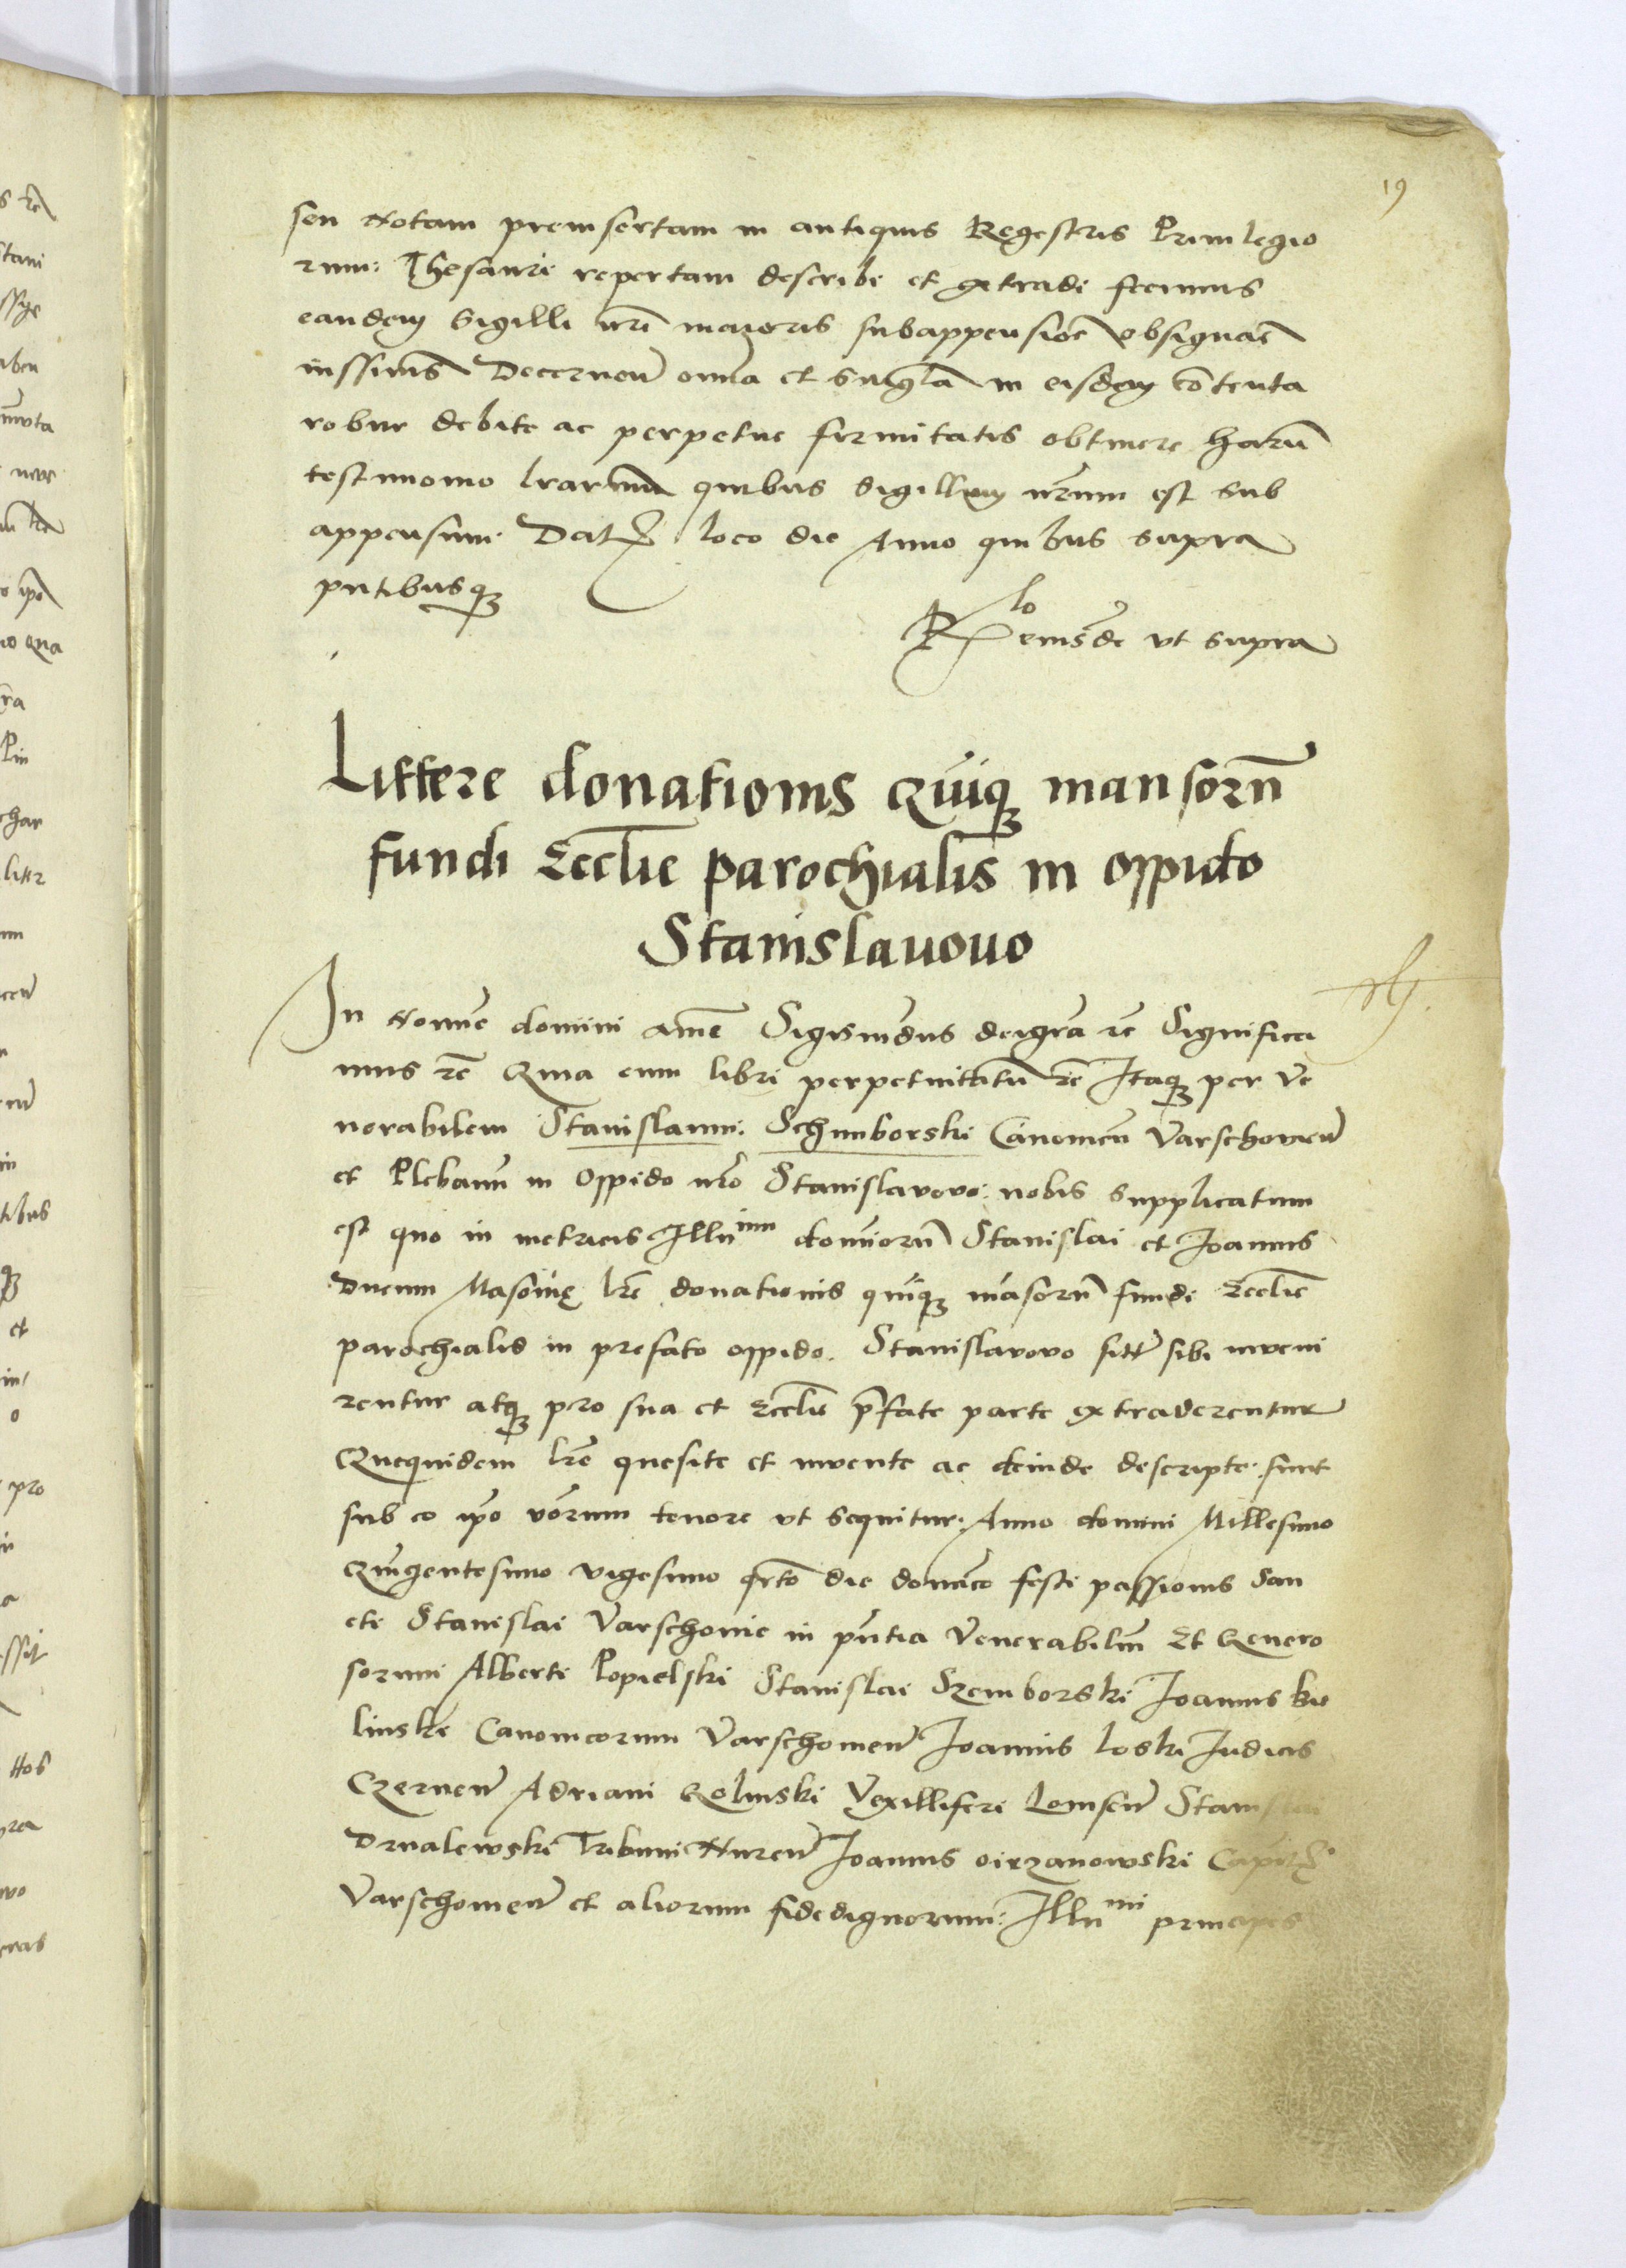 19
seu Notam preinsertam in antiquis Regestris Privilegio
rum: Thesauri repertam describi et extradi fecimus
eandem Sigilli nrĩ maioris subappensiõe obsignarĩ
iussimus Decerneñ om̃ia et singl̃a in eisdem cõtenta
robur debite ac perpetue firmitatis obtinere harũ
testimonio lrarum quibus sigillum nrm̃um est sub
appensum: Dat loco die Anno quibus supra
pñtibusqꝫ
Rlo eiusdẽ ut supra
Littere donationis Quiqꝫ mansorũ
fundi Eccl̃ie parochialis in oppido
Stanislavovo
In Nomĩe domini amẽ Sigismũdus dei grã rc̃ Significa
mus rc̃ Quia cum libri perpetuitatũ rc̃ Itaqꝫ per Ve
nerabilem Stanislaum: Schimborski Canonicũ Varschovieñ
et Plebanũ in Oppido nr̃o Stanislavovo: nobis supplicatum
est quo in metricis Illuim̃ dominorũ Stanislai et Joannis
Ducum Masovię lrẽ donationis quiqꝫ mãsorũ fundi Eccl̃ie
parochialis in prefato oppido. Stanislavovo sitẽ sibi inveni
rentur atqꝫ pro sua et Eccl̃ie p̃fate parte extraderentur
Quequidem lrẽ quesite et invente ac deinde descripte sunt
sub eo ip̃o verũm tenore ut sequitur: Anno domini Millesimo
Quĩgentesimo vigesimo qrto die domĩco festi passionis San
cti Stanislai Varschovie in pñtia Venerabiliũ Et Genero
sorum Alberti Popielski Stanislai Szemborski Joannis bie
linski Canonicorum Varschovieñ Joannis loski Judicis
Czerneñ Adriani Golinski Vexilliferi Lomseñ Stanislai
Drualewski Tribuni Nureñ Joannis oirzanowski Capit
Varschovieñ et aliorum fidedignorum: Illumi principes